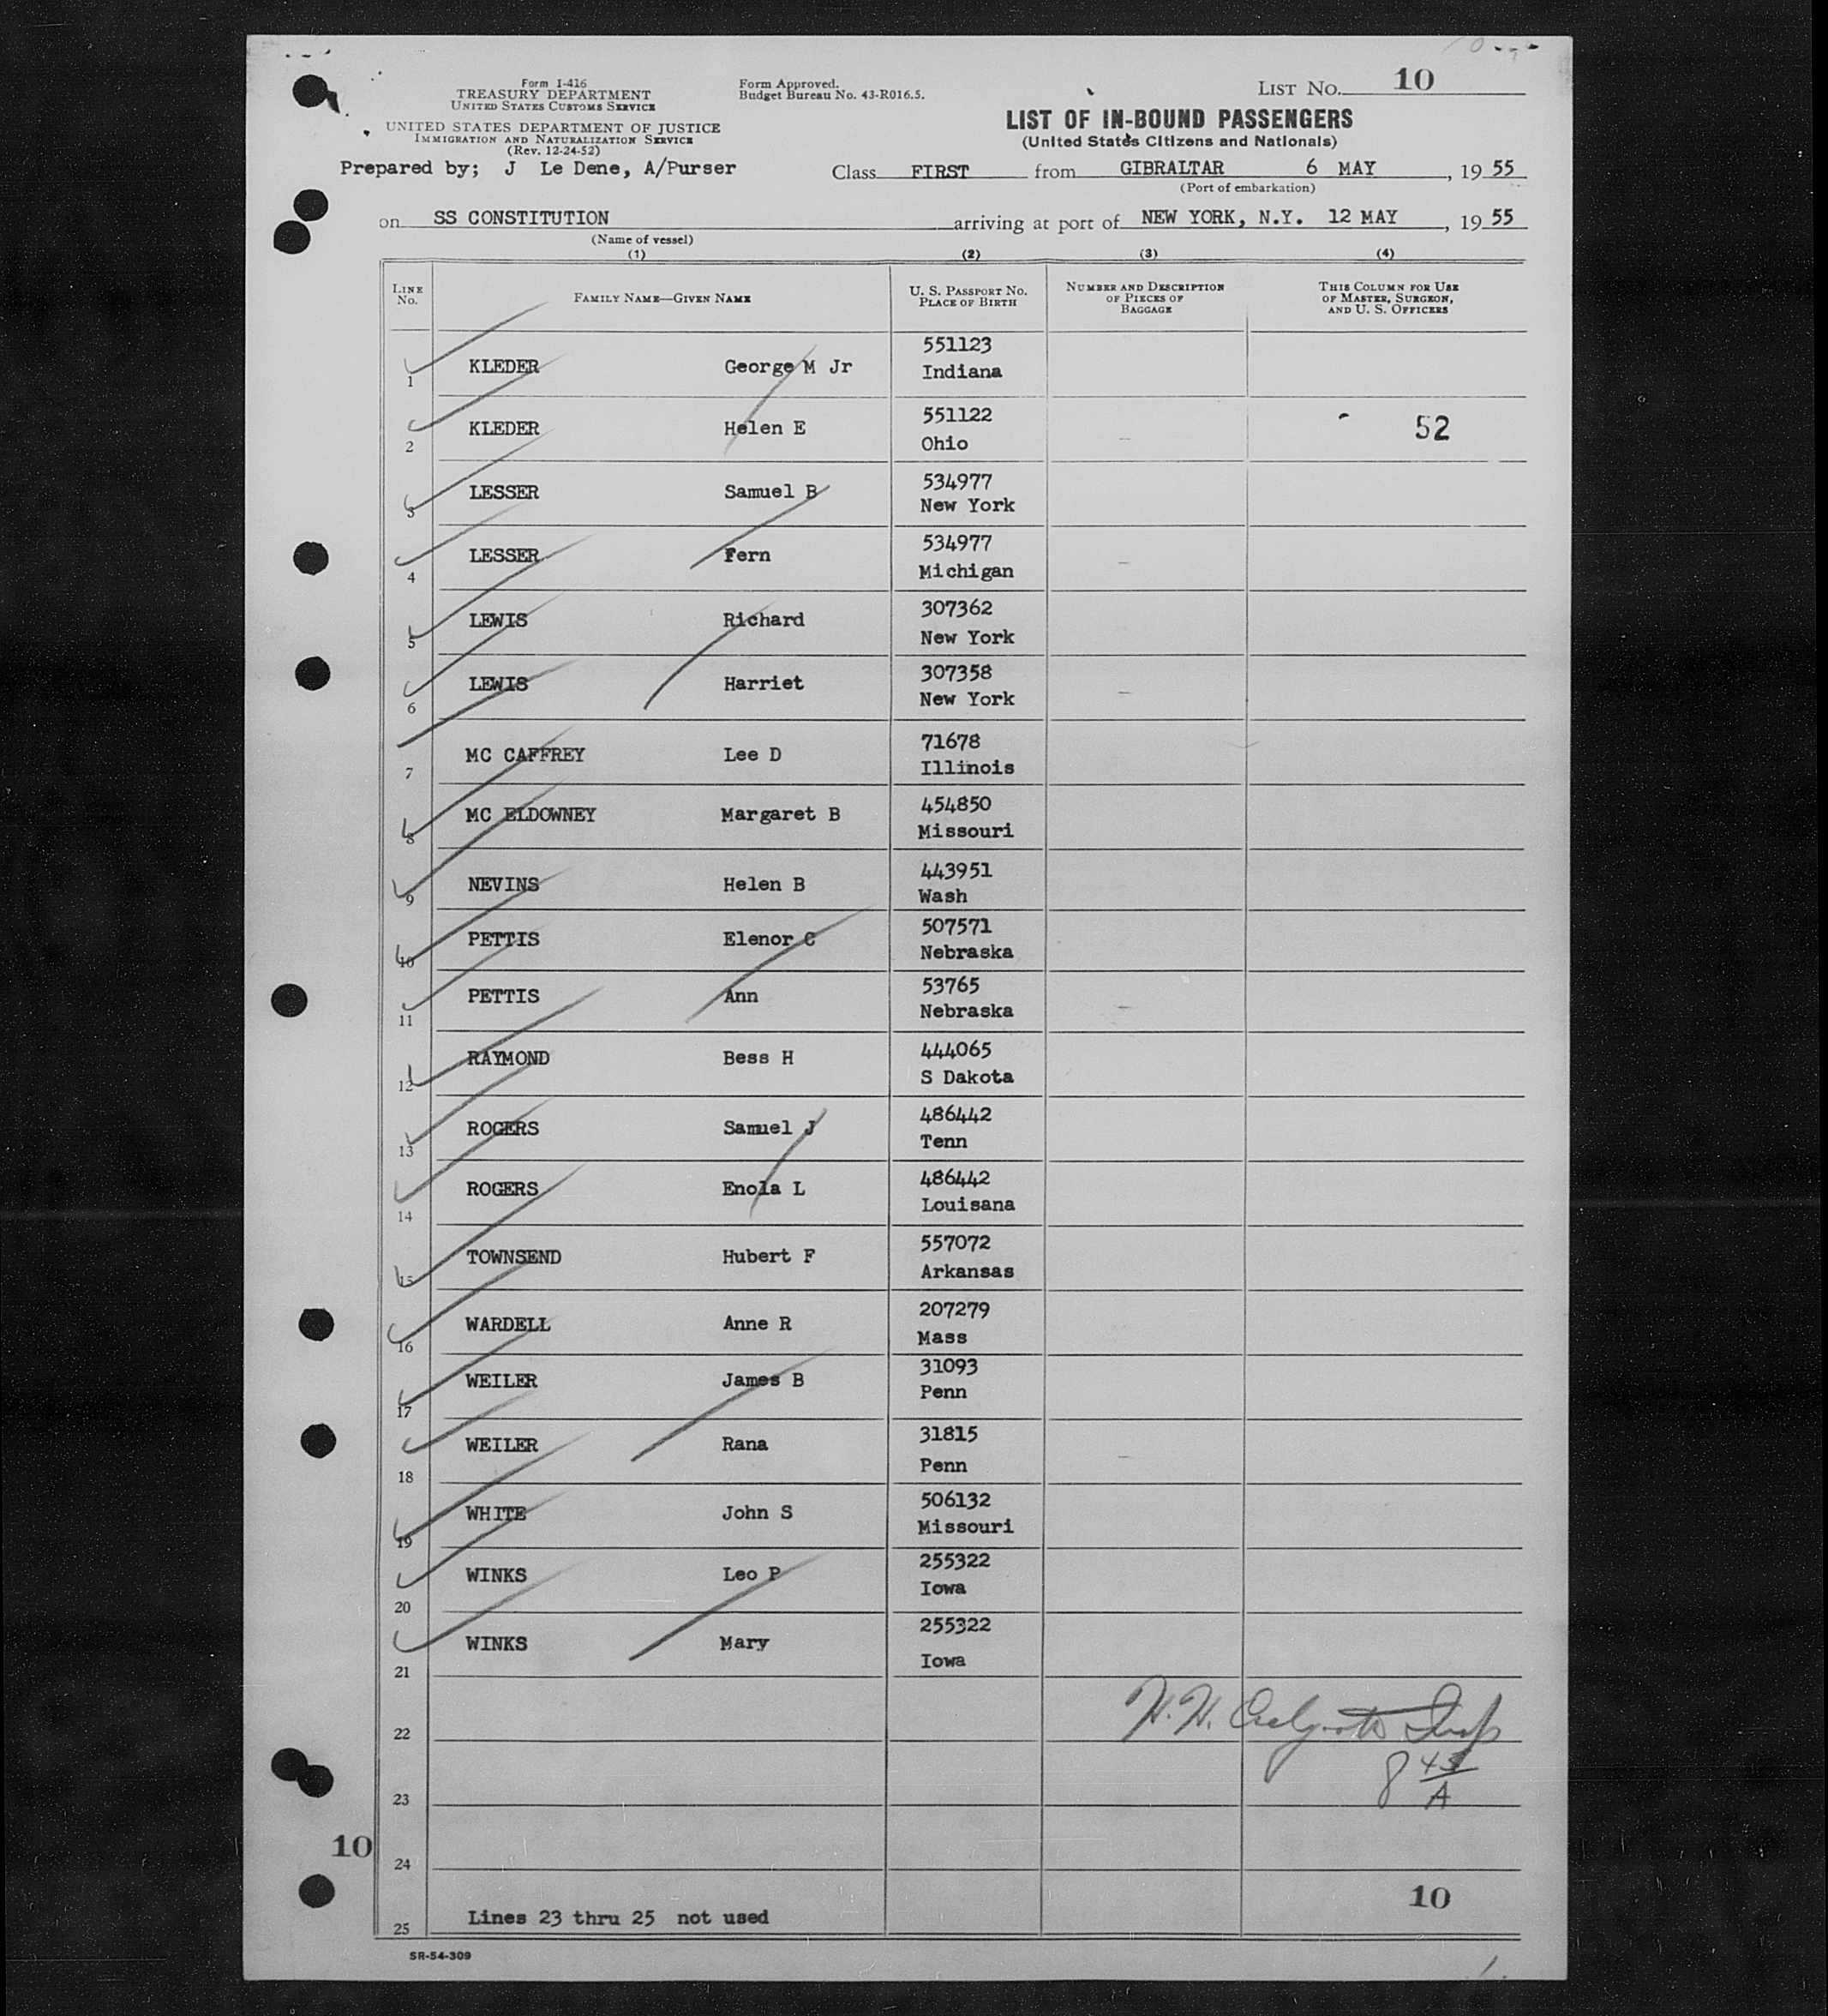 Form I-416
TREASURY DEPARTMENT
UNITED STATES CUSTOMS SERVICE
UNITED STATES DEPARTMENT OF JUSTICE
IMMIGRATION AND NATURALIZATION SERVICE
(Rev. 12-24-52)
Form Approved.
Budget Bureau No. 43-R016.5.
LIST NO. 10
LIST OF IN-BOUND PASSENGERS
(United States Citizens and Nationals)
Prepared by; J Le Dene, A/Purser
Class FIRST from GIBRALTAR 6 MAY, 19 55
(Port of embarkation)
on SS CONSTITUTION arriving at port of NEW YORK, N.Y. 12 MAY, 19 55
(Name of vessel)
(1) (2) (3) (4)
LINE No. FAMILY NAME—GIVEN NAME U. S. PASSPORT NO. PLACE OF BIRTH NUMBER AND DESCRIPTION OF PIECES OF BAGGAGE THIS COLUMN FOR USE OF MASTER, SURGEON, AND U. S. OFFICERS
1 KLEDER George M Jr 551123 Indiana
2 KLEDER Helen E 551122 Ohio 52
3 LESSER Samuel B 534977 New York
4 LESSER Fern 534977 Michigan
5 LEWIS Richard 307362 New York
6 LEWIS Harriet 307358 New York
7 MC CAFFREY Lee D 71678 Illinois
8 MC ELDOWNEY Margaret B 454850 Missouri
9 NEVINS Helen B 443951 Wash
10 PETTIS Elenor C 507571 Nebraska
11 PETTIS Ann 53765 Nebraska
12 RAYMOND Bess H 444065 S Dakota
13 ROGERS Samuel J 486442 Tenn
14 ROGERS Enola L 486442 Louisana
15 TOWNSEND Hubert F 557072 Arkansas
16 WARDELL Anne R 207279 Mass
17 WEILER James B 31093 Penn
18 WEILER Rana 31815 Penn
19 WHITE John S 506132 Missouri
20 WINKS Leo P 255322 Iowa
21 WINKS Mary 255322 Iowa
22 H. H. Insp
23 8 45/A
10
24
10
25 Lines 23 thru 25 not used
SR-54-309